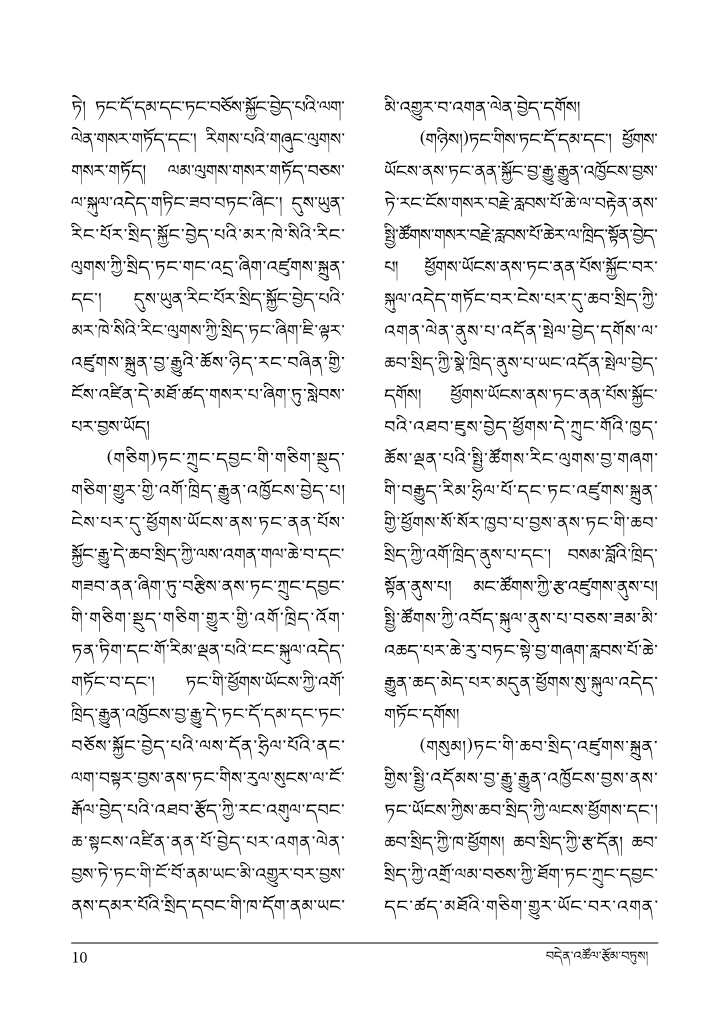 ཏེ། ཏང་དོ་དམ་དང་ཏང་བཅོས་སྐྱོང་བྱེད་པའི་ལག་
ལེན་གསར་གཏོད་དང་། རིགས་པའི་གཞུང་ལུགས་
གསར་གཏོད། ལམ་ལུགས་གསར་གཏོད་བཅས་
ལ་སྐུལ་འདེད་གཏིང་ཟབ་བཏང་ཞིང་། དུས་ཡུན་
རིང་པོར་སྲིད་སྐྱོང་བྱེད་པའི་མར་ཁེ་སིའི་རིང་
ལུགས་ཀྱི་སྲིད་ཏང་གང་འདྲ་ཞིག་འཛུགས་སྐྲུན་
དང་། དུས་ཡུན་རིང་པོར་སྲིད་སྐྱོང་བྱེད་པའི་
མར་ཁེ་སིའི་རིང་ལུགས་ཀྱི་སྲིད་ཏང་ཞིག་ཇི་ལྟར་
འཛུགས་སྐྲུན་བྱ་རྒྱུའི་ཆོས་ཉིད་རང་བཞིན་གྱི་
ངོས་འཛིན་དེ་མཐོ་ཚད་གསར་པ་ཞིག་ཏུ་སླེབས་
པར་བྱས་ཡོད།
(གཅིག)ཏང་ཀྲུང་དབྱང་གི་གཅིག་སྡུད་
གཅིག་གྱུར་གྱི་འགོ་ཁྲིད་རྒྱུན་འཁྱོངས་བྱེད་པ།
ངེས་པར་དུ་ཕྱོགས་ཡོངས་ནས་ཏང་ནན་པོས་
སྐྱོང་རྒྱུ་དེ་ཆབ་སྲིད་ཀྱི་ལས་འགན་གལ་ཆེ་བ་དང་
གཟབ་ནན་ཞིག་ཏུ་བརྩིས་ནས་ཏང་ཀྲུང་དབྱང་
གི་གཅིག་སྡུད་གཅིག་གྱུར་གྱི་འགོ་ཁྲིད་འོག་
ཏན་ཏིག་དང་གོ་རིམ་ལྡན་པའི་ངང་སྐུལ་འདེད་
གཏོང་བ་དང་། ཏང་གི་ཕྱོགས་ཡོངས་ཀྱི་འགོ་
ཁྲིད་རྒྱུན་འཁྱོངས་བྱ་རྒྱུ་དེ་ཏང་དོ་དམ་དང་ཏང་
བཅོས་སྐྱོང་བྱེད་པའི་ལས་དོན་ཧྲིལ་པོའི་ནང་
ལག་བསྟར་བྱས་ནས་ཏང་གིས་རུལ་སུངས་ལ་ངོ་
རྒོལ་བྱེད་པའི་འཐབ་རྩོད་ཀྱི་རང་འགུལ་དབང་
ཆ་སྟངས་འཛིན་ནན་པོ་བྱེད་པར་འགན་ལེན་
བྱས་ཏེ་ཏང་གི་ངོ་བོ་ནམ་ཡང་མི་འགྱུར་བར་བྱས་
ནས་དམར་པོའི་སྲིད་དབང་གི་ཁ་དོག་ནམ་ཡང་
མི་འགྱུར་བ་འགན་ལེན་བྱེད་དགོས།
(གཉིས།)ཏང་གིས་ཏང་དོ་དམ་དང་། ཕྱོགས་
ཡོངས་ནས་ཏང་ནན་སྐྱོང་བྱ་རྒྱུ་རྒྱུན་འཁྱོངས་བྱས་
ཏེ་རང་ངོས་གསར་བརྗེ་རླབས་པོ་ཆེ་ལ་བརྟེན་ནས་
སྤྱི་ཚོགས་གསར་བརྗེ་རླབས་པོ་ཆེར་ལ་ཁྲིད་སྟོན་བྱེད་
པ། ཕྱོགས་ཡོངས་ནས་ཏང་ནན་པོས་སྐྱོང་བར་
སྐུལ་འདེད་གཏོང་བར་ངེས་པར་དུ་ཆབ་སྲིད་ཀྱི་
འགན་ལེན་ནུས་པ་འདོན་སྤེལ་བྱེད་དགོས་ལ་
ཆབ་སྲིད་ཀྱི་སྣེ་ཁྲིད་ནུས་པ་ཡང་འདོན་སྤེལ་བྱེད་
དགོས། ཕྱོགས་ཡོངས་ནས་ཏང་ནན་པོས་སྐྱོང་
བའི་འཐབ་ཇུས་བྱེད་ཕྱོགས་དེ་ཀྲུང་གོའི་ཁྱད་
ཆོས་ལྡན་པའི་སྤྱི་ཚོགས་རིང་ལུགས་བྱ་གཞག་
གི་བརྒྱུད་རིམ་ཧྲིལ་པོ་དང་ཏང་འཛུགས་སྐྲུན་
གྱི་ཕྱོགས་སོ་སོར་ཁྱབ་པ་བྱས་ནས་ཏང་གི་ཆབ་
སྲིད་ཀྱི་འགོ་ཁྲིད་ནུས་པ་དང་། བསམ་བློའི་ཁྲིད་
སྟོན་ནུས་པ། མང་ཚོགས་ཀྱི་རྩ་འཛུགས་ནུས་པ།
སྤྱི་ཚོགས་ཀྱི་འབོད་སྐུལ་ནུས་པ་བཅས་ཟམ་མི་
འཆད་པར་ཆེ་རུ་བཏང་སྟེ་བྱ་གཞག་རླབས་པོ་ཆེ་
རྒྱུན་ཆད་མེད་པར་མདུན་ཕྱོགས་སུ་སྐུལ་འདེད་
གཏོང་དགོས།
(གསུམ།)ཏང་གི་ཆབ་སྲིད་འཛུགས་སྐྲུན་
གྱིས་སྤྱི་འདོམས་བྱ་རྒྱུ་རྒྱུན་འཁྱོངས་བྱས་ནས་
ཏང་ཡོངས་ཀྱིས་ཆབ་སྲིད་ཀྱི་ལངས་ཕྱོགས་དང་།
ཆབ་སྲིད་ཀྱི་ཁ་ཕྱོགས། ཆབ་སྲིད་ཀྱི་རྩ་དོན། ཆབ་
སྲིད་ཀྱི་འགྲོ་ལམ་བཅས་ཀྱི་ཐོག་ཏང་ཀྲུང་དབྱང་
དང་ཚད་མཐོའི་གཅིག་གྱུར་ཡོང་བར་འགན་
10
བདེན་འཚོལ་རྩོམ་བཏུས།